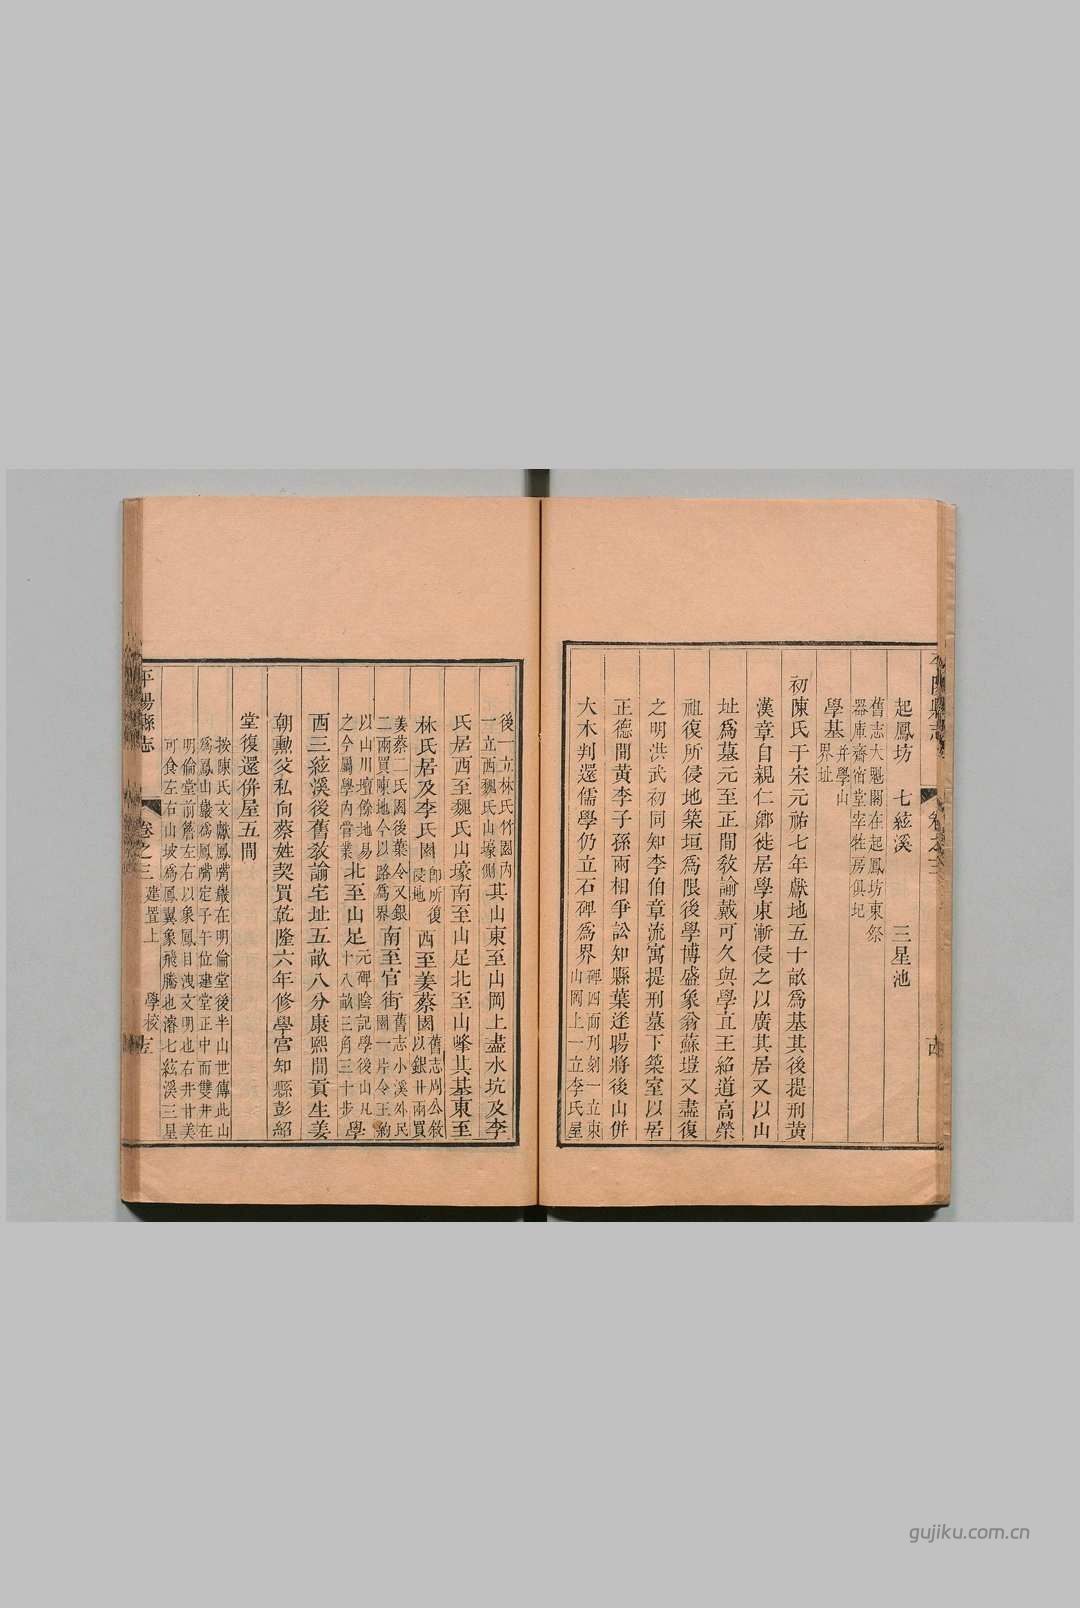 起鳳坊　七絃溪　三星池
舊志大魁閣在起鳳坊東祭
器庫齋宿堂宰牲房俱圮
學基并學山
界址
初陳氏于宋元祐七年獻地五十畝爲基其後提刑黃
漢章自親仁鄉徙居學東漸侵之以廣其居又以山
址爲墓元至正間敎諭戴可久與學直王紹道高榮
祖復所侵地築垣爲限後學博盛象翁蘇塏又盡復
之明洪武初同知李伯章流寓提刑墓下築室以居
正德間黃李子孫兩相爭訟知縣葉逢暘將後山併
大木判還儒學仍立石碑爲界碑四面刋刻一立東
山岡上一立李氏屋
平陽縣志
卷之三
後一立林氏竹園內
一立西魏氏山壕側其山東至山岡上盡水坑及李
氏居西至魏氏山壕南至山足北至山峰其基東至
林氏居及李氏園卽所復
侵地西至姜蔡園舊志周公敘
以銀廿兩買
姜蔡二氏園後葉令又銀
二兩買陳地今以路爲界南至官街舊志小溪外民
園一片令王約
以山川壇餘地易
之今屬學內嘗業北至山足元碑陰記學後山凡
十八畝三角三十步學
西三絃溪後舊敎諭宅址五畝八分康熙間貢生姜
朝勲父私向蔡姓契買乾隆六年修學宮知縣彭紹
堂復還併屋五間
按陳氏文獻鳳嘴巖在明倫堂後半山世傳此山
爲鳳山巖爲鳳嘴定子午位建堂正中而雙井在
明倫堂前簷左右以象鳳目洩文明也右井甘美
可食左右山坡爲鳳翼象飛騰也濬七絃溪三星
平陽縣志
卷之三
建置上
學校
gujiku.com.cn